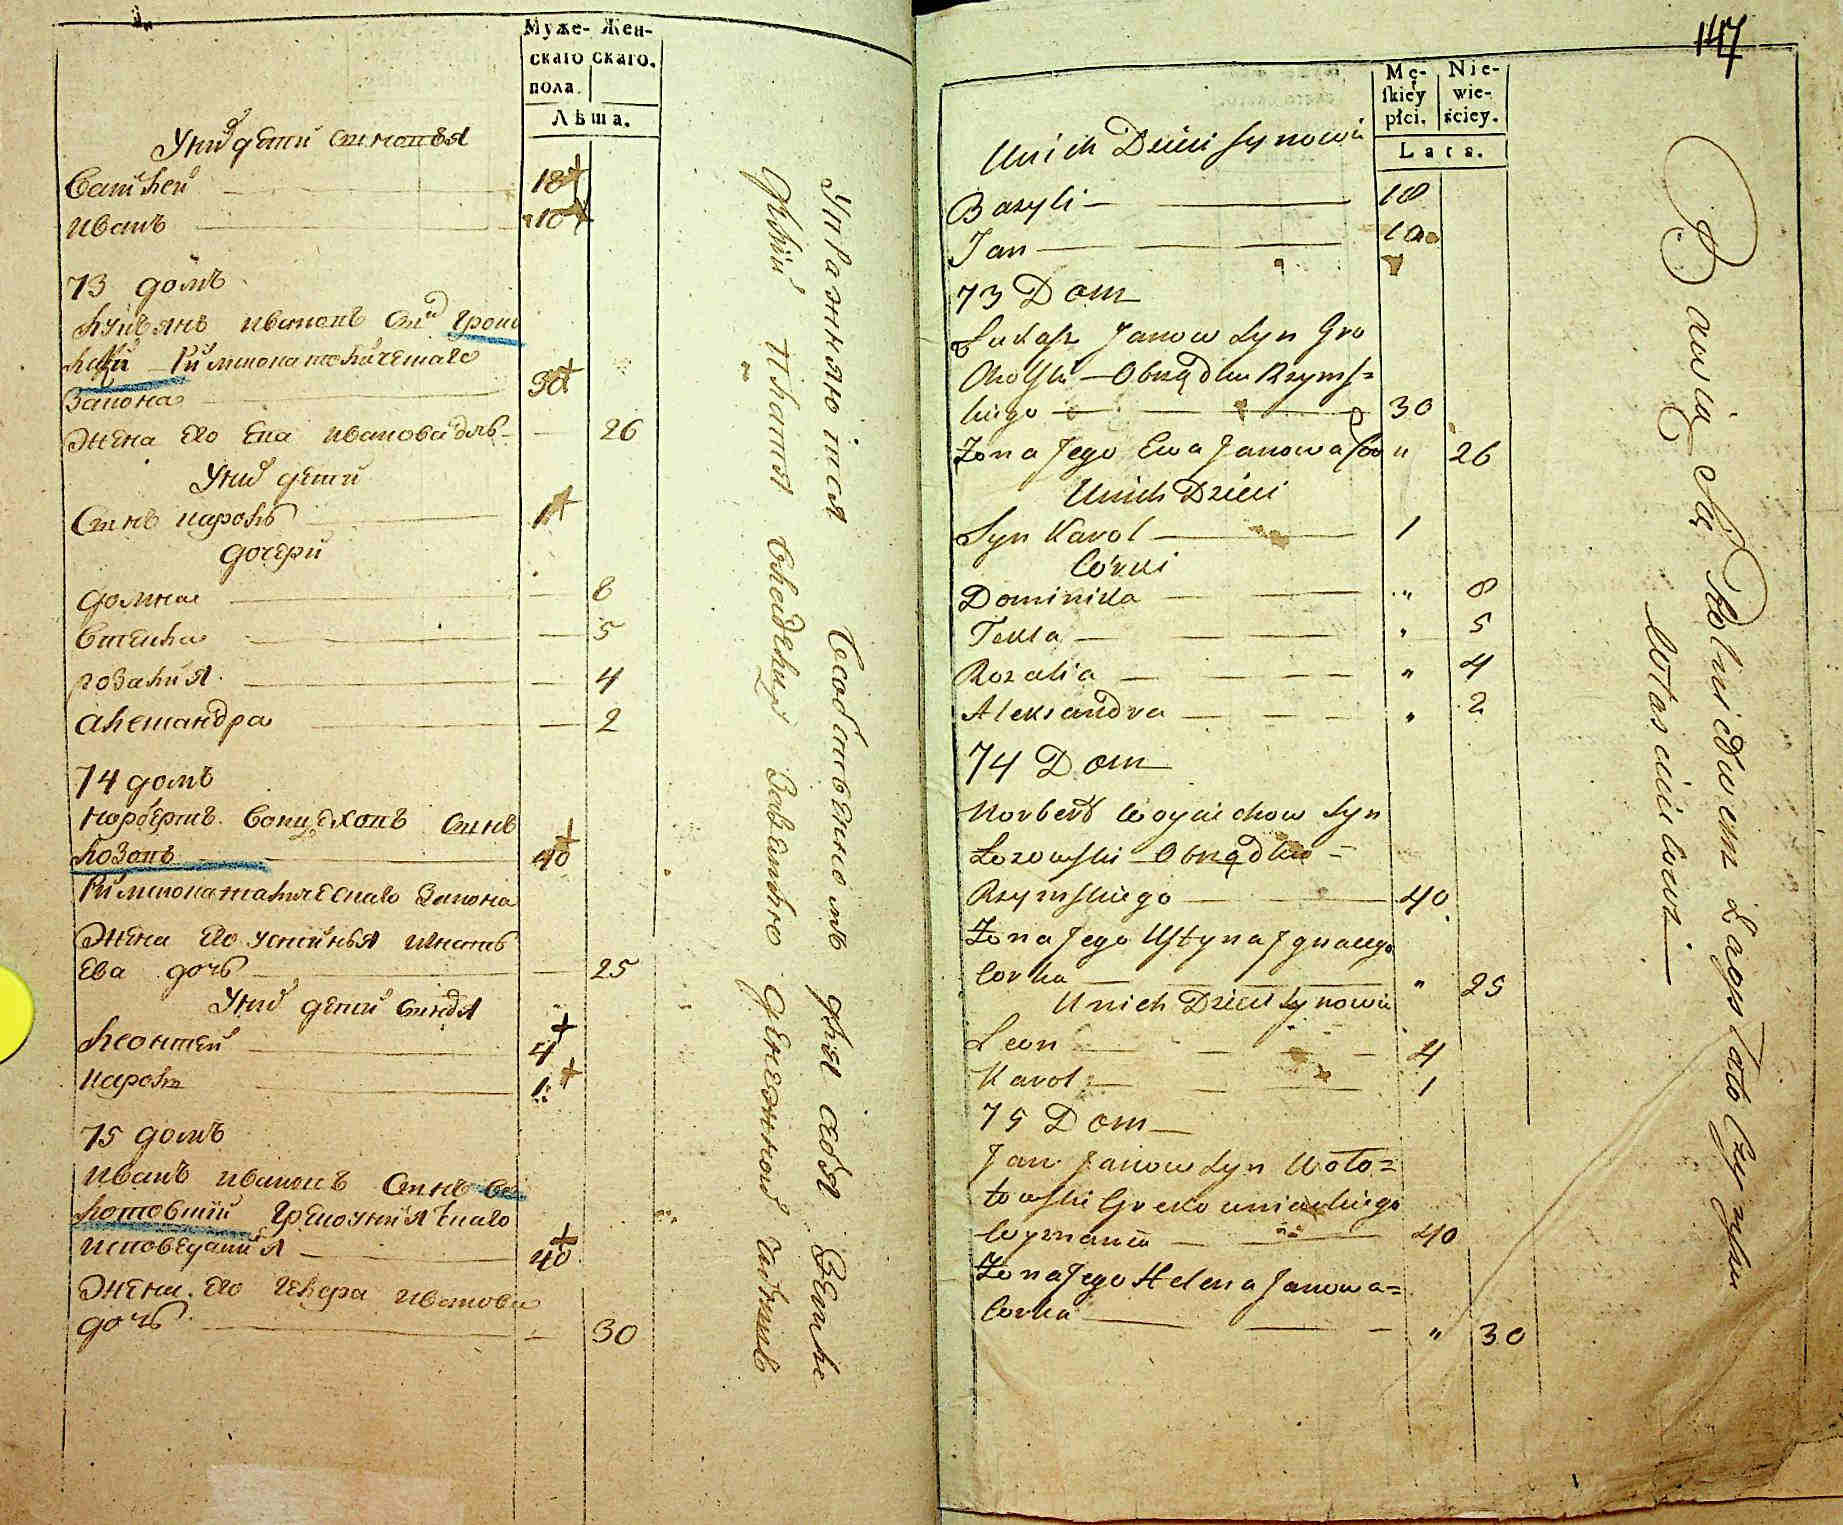 Муже- Жен-
скаго скаго.
пола.
Лѣта.
Унихъ дети сыновья
Василей 18
иванъ 10
73 домъ
лукъянъ ивановъ сынъ грохо
лский Римскокатоличешаго
Закона 30
Жена его Ева иванова дочь 26
Унихъ дети
Сынъ кароль 1
дочери
домина 8
текла 5
розалия 4
александра 2
74 домъ
норбертъ войцеховъ сынъ
лозовъ 40
Римскокатолическаго Закона
Жена его устинья игнать
ева дочь 25
Унихъ дети сыновья
леонтей 4
кароль 1
75 домъ
иванъ ивановъ сынъ во
лотовший грекоуниятскаго
исповеданиія 40
Жена его гелена иванова
дочь 30
Упражняютися собственномъ для себя земле
делий платя владельцу
147
Mę- Nie-
skiey wie-
płci. ściey.
Lata.
Unich Dzieci synowie
Bazyli 18
Jan 10
73 Dom
Łukasz Janow syn Gro
cholski Obrządku Rzyms=
kiego 30
Żona Jego Ewa Janowa Cor " 26
Unich Dzieci
Syn Karol 1
Córki
Dominika " 8
Tekla " 5
Rozalia " 4
Aleksandra " 2
74 Dom
Norbert Woyciechow syn
Łozowski Obrządku =
Rzymskiego 40
Żona Jego Ustyna Jgnacego
Corka " 25
Unich Dzieci synowie
Leon 4
Karol 1
75 Dom
Jan Janow syn Woło=
towski Greko unickiego
Wyznania 40
Żona Jego Helena Janowa=
Corka " 30
Bawią się Rolnictwem Zapłatą Czynszu
Włascicielowi